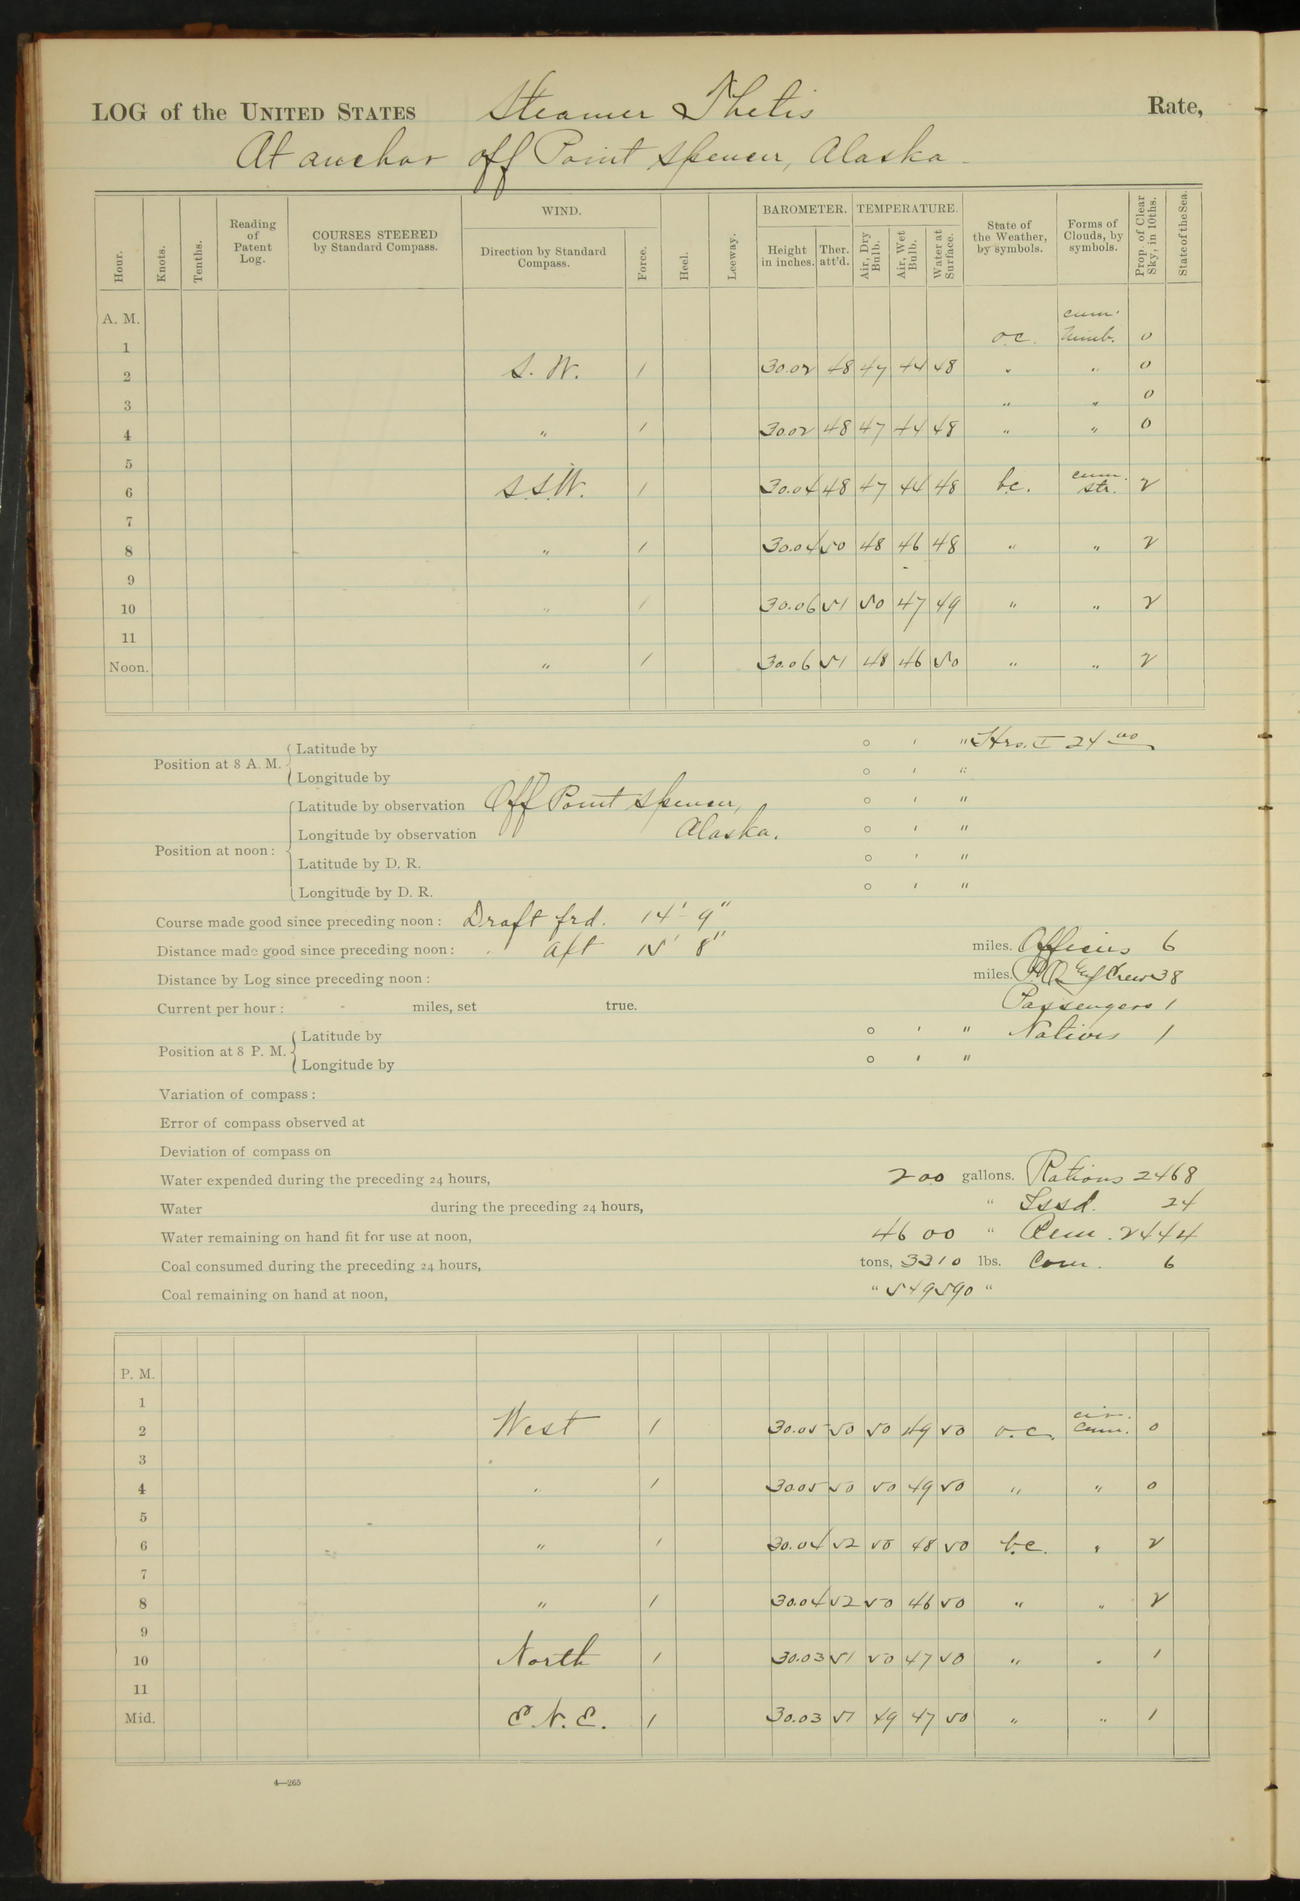 LOG of the UNITED STATES Steamer Thetis Rate,
At anchor off Point Spencer, Alaska
WIND. BAROMETER. TEMPERATURE.
Hour. Knots. Tenths. Reading of Patent Log. COURSES STEERED by Standard Compass. Direction by Standard Compass. Force. Heel. Leeway. Height in inches. Ther. att'd. Air, Dry Bulb. Air, Wet Bulb. Water at Surface. State of the Weather, by symbols. Forms of Clouds, by symbols. Prop. of Clear Sky, in 10ths. State of the Sea.
A. M. cum.
1 o.c. Nimb. 0
2 S. W. 1 30.02 48 47 44 48 " " 0
3 " " 0
4 " 1 30.02 48 47 44 48 " " 0
5
6 S.S.W. 1 30.04 48 47 44 48 b.c. cum. str. 2
7
8 " 1 30.04 50 48 46 48 " " 2
9
10 " 1 30.06 51 50 47 49 " " 2
11
Noon. " 1 30.06 51 48 46 50 " " 2
Position at 8 A. M. Latitude by ° ' " Hrs. I 24 00
Longitude by ° ' "
Position at noon: Latitude by observation Off Point Spencer, ° ' "
Longitude by observation Alaska. ° ' "
Latitude by D. R. ° ' "
Longitude by D. R. ° ' "
Course made good since preceding noon: Draft frd. 14' 9"
Distance made good since preceding noon: " aft 15' 8" miles. Officers 6
Distance by Log since preceding noon: miles. Crew 38
Current per hour: miles, set true. Passengers 1
Position at 8 P. M. Latitude by ° ' " Natives 1
Longitude by ° ' "
Variation of compass:
Error of compass observed at
Deviation of compass on
Water expended during the preceding 24 hours, 200 gallons. Rations 2468
Water during the preceding 24 hours, " Issd. 24
Water remaining on hand fit for use at noon, 4600 " Rem. 2444
Coal consumed during the preceding 24 hours, tons, 3310 lbs. Com. 6
Coal remaining on hand at noon, " 549590 "
P. M.
1
2 West 1 30.05 50 50 49 50 o.c. cir. cum. 0
3
4 " 1 30.05 50 50 49 50 " " 0
5
6 " 1 30.04 52 50 48 50 b.c. " 2
7
8 " 1 30.04 52 50 46 50 " " 2
9
10 North 1 30.03 51 50 47 50 " " 1
11
Mid. E.N.E. 1 30.03 51 49 47 50 " " 1
4—265